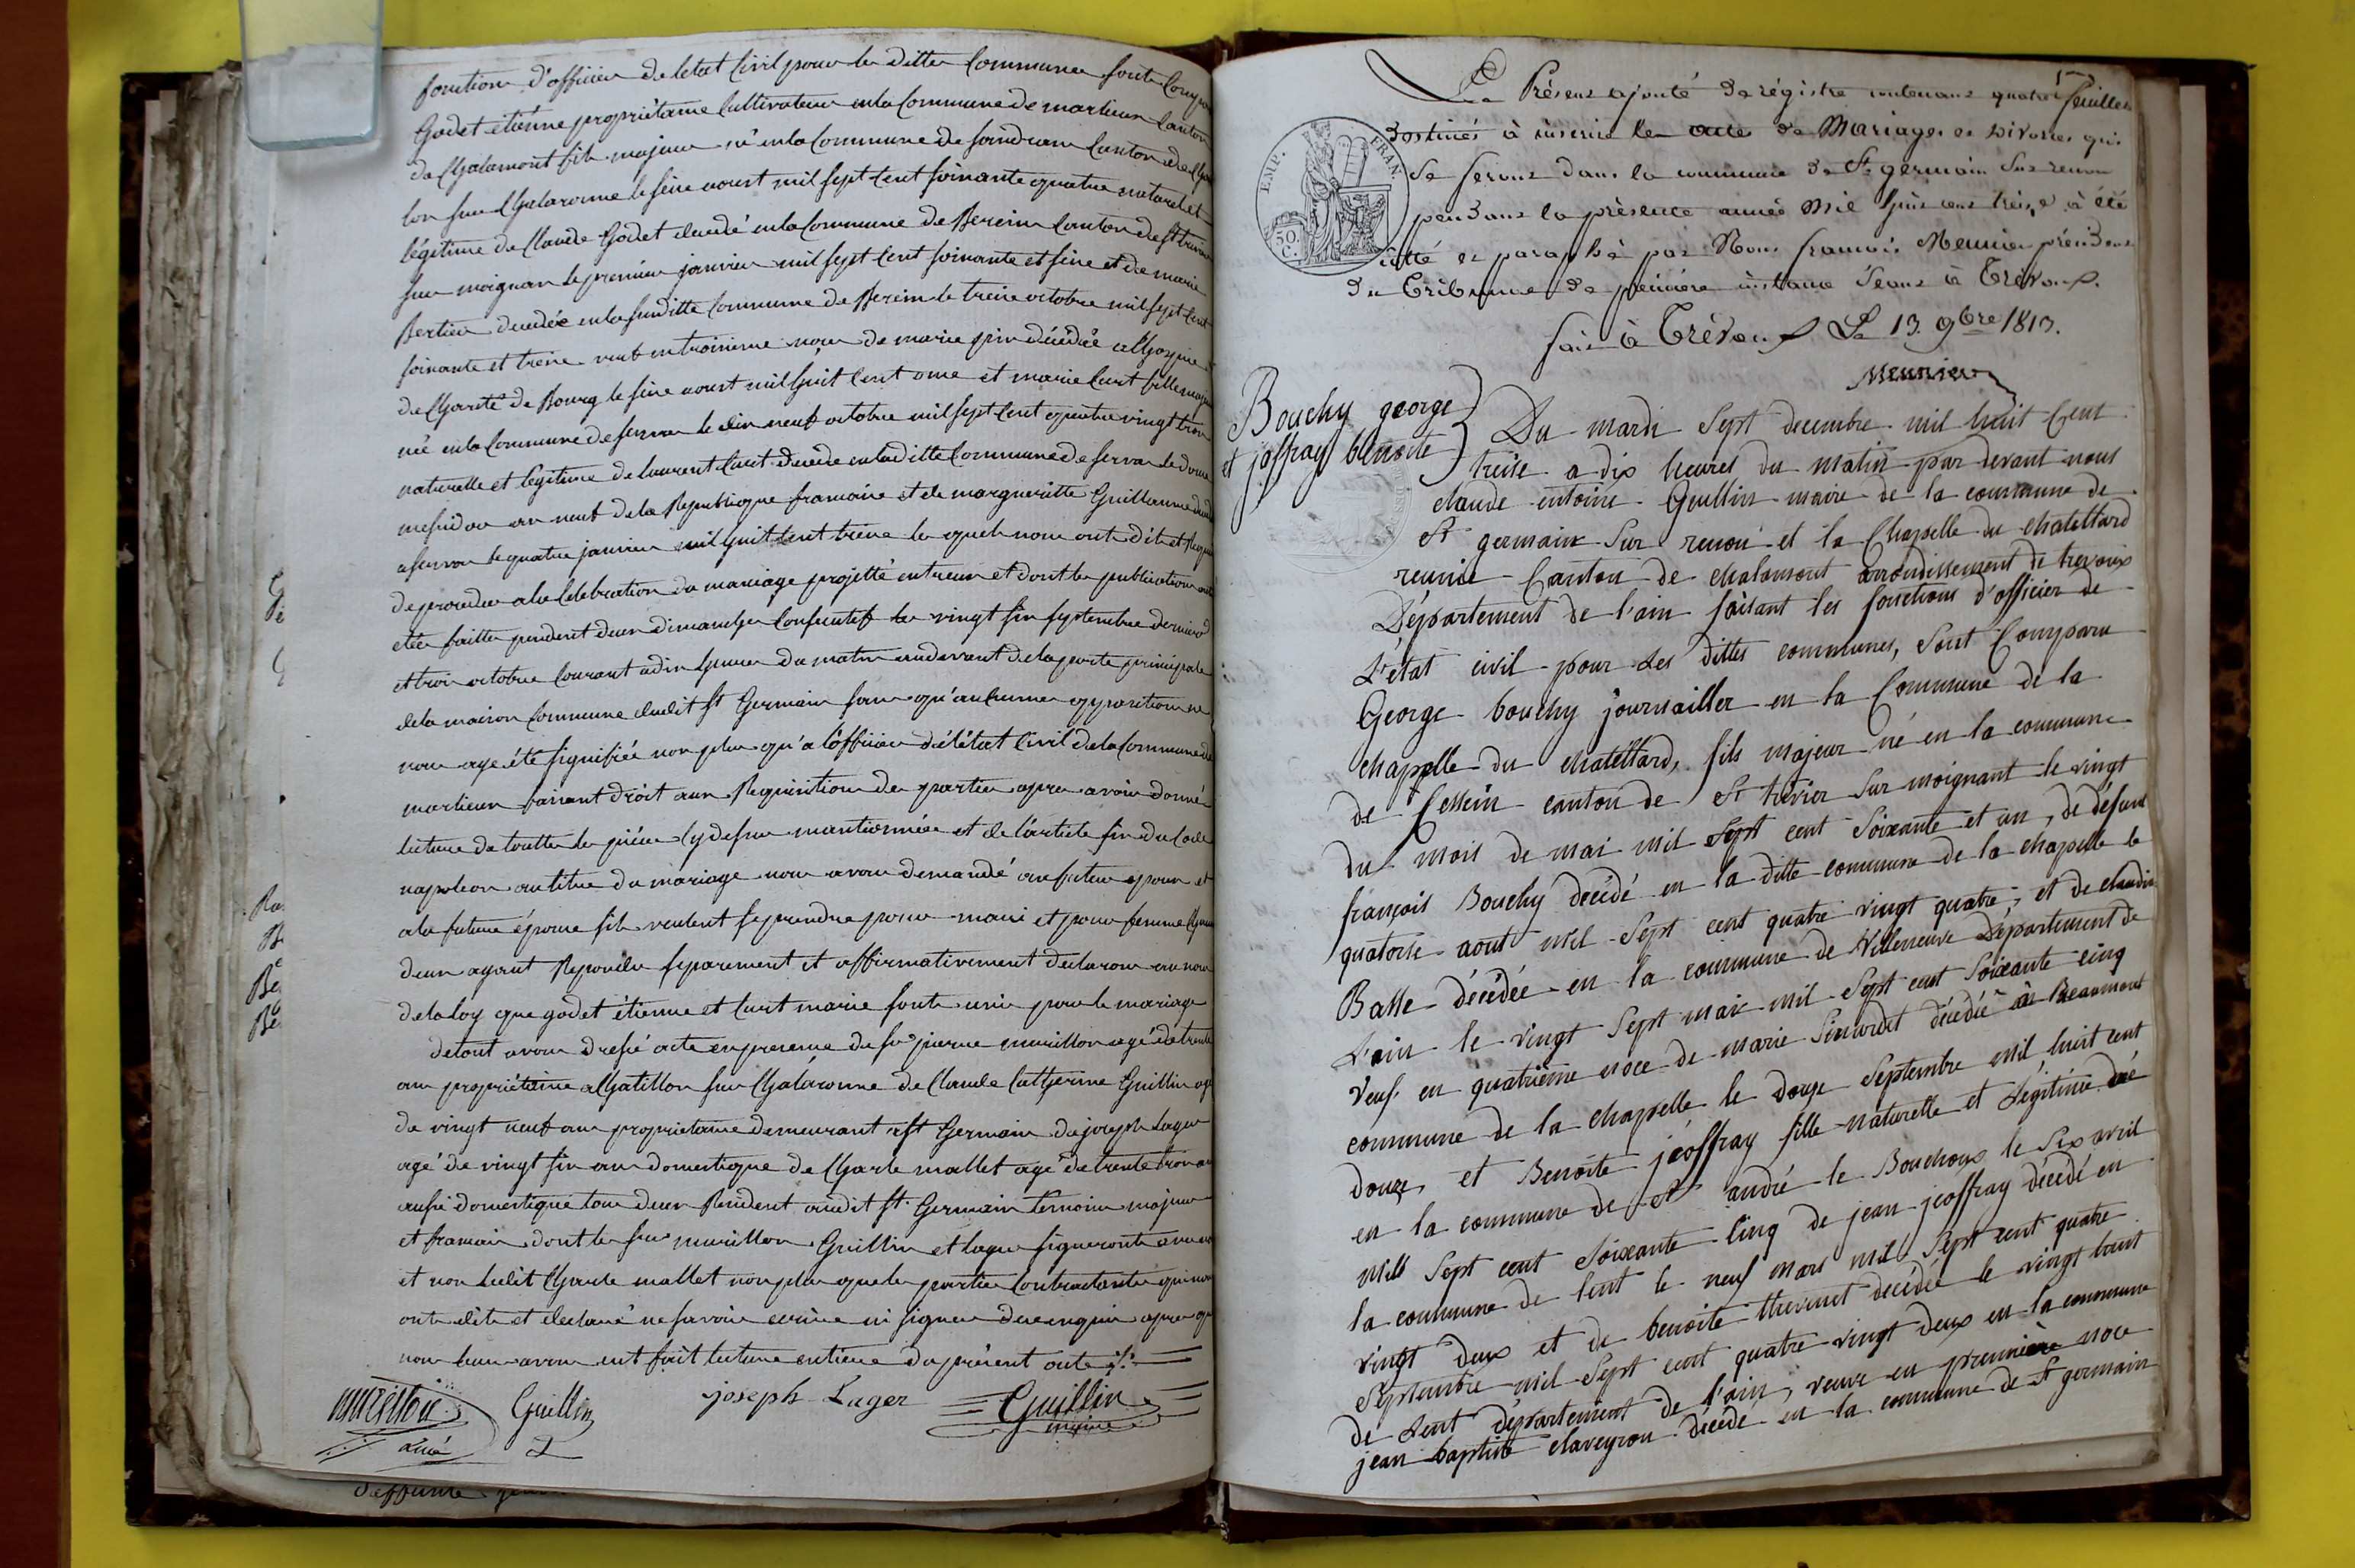 fonctions d'officier de letat Civil pour les dittes Communes sont Comparu
Godet etiénne propriétaire Cultivateur en la Commune de marlieux Canton
de Chalamont fils majeur né en la Commune de sandrans Canton de Cha
lon sur Chalaronne le seize aoust mil sept Cent soixante quatre naturel et
légitime de Claude Godet décédé en la Commune de Bereins Canton de st trivier
sur moignan le premier janvier mil sept Cent soixante et seize et de marie
Bertier décédée en la susditte Commune de Bereins le treize octobre mil sept Cent
soixante et treize veuf en troisieme noces de marie pin décédée a lhospice
de Charité de Bourg le seize aoust mil huit Cent onze et marie Curt fille majeure
née en la Commune de servas le dix neuf octobre mil sept Cent quatre vingt trois
naturelle et légitime de laurent Curt décédé en laditte Commune de servas le douze
messidor an neuf de la Republique francaise et de margueritte Guillaume décédée
a servas le quatre janvier mil huit Cent treize les quels nous ont dit et Requis
de proceder a la Celebration du mariage projetté entreux et dont les publications ont
étée faittes pendent deux dimanches Consecutifs les vingt six septembre dernier
et trois octobre Courant a dix heures du matin audevant de la porte principale
de la maison Commune dudit st Germain sans qu'aucunes opposition ne
nous aye été signifiée non plus qu'a l'officier de létat Civil de la Commune de
marlieux faisant droit aux Requisitions des parties apres avoir donné
lecture de touttes les piéces Cy dessus mantionnées et de l'article six du Code
napoleon au titre du mariage nous avons demandé au futeur epoux et
a la future épouse s'ils veulent se prendre pour mari et pour femme Chacun
deux ayant Repondu separement et affirmativement declarons au nom
de la loy que godet étienne et Curt marie sont unis pour le mariage
de tout avons dressé acte en presence du sr pierre murillon agé de trente
ans propriétaire a Chatillon sur Chalaronne de Claude Catherine Guillin agé
de vingt neuf ans proprietaire demeurant a st Germain de joseph Lager
agé de vingt six ans domestique de Charle mallet agé de trente trois ans
aussi domestique tous deux Resident audit st Germain temoins majeurs
et francais dont les srs murillon Guillin et lager signeront avec nous
et non ledit Charle mallet non plus que les parties Contractantes qui nous
ont dit et declaré ne savoir ecrire ni signer de ce enquis apres que
nous leur avons eut fait lecture entiere du présent acte
murillon ainé Guillin joseph Lager Guillin maire
Le Présent ajouté de régistre contenant quatre feuilles
destinés à inscrire les actes de Mariages et divorces qui
se feront dans la commune de St germain sur renom
pendant la présente année mil huit cent treize a été
cotté et paraphé par Nous françois Meunier président
du Tribunal de première instance séant à Trévoux.
fait à Trévoux Le 13. 9bre 1813.
Meunier
EMP. FRAN.
50. C.
Bouchy george
et joffray benoite
Du mardi Sept decembre mil huit Cent
treise a dix heures du matin par devant nous
claude antoine Guillin maire de la commune de
st germain Sur renon et la Chapelle du chatellard
reunie Canton de chalamont arrondissement de trevoux
Département de l'ain faisant les fonctions d'officier de
L'état civil pour les dittes communes, Sont Comparu
George bouchy journailler en la Commune de la
chapelle du chatellard, fils majeur né en la commune
de Cessein canton de St trivier Sur moignant le vingt
du mois de mai mil Sept cent Soixante et un, de défunt
françois Bouchy decédé en la ditte commune de la chapelle le
quatorse aout mil Sept cent quatre vingt quatre, et de claudine
Basse décédée en la commune de villeneuve Département de
L'ain le vingt Sept mai mil Sept cent Soixante cinq
veuf en quatrième noce de marie Sivardet décédée à Beaumont
commune de la chapelle le douze Septembre mil huit cent
douze, et Benoîte jéoffray fille naturelle et Légitime née
en la commune de St andré le Bouchoux le Six avril
mill Sept cent Soixante Cinq de jean jeoffray décédé en
la commune de lent le neuf mars mil Sept cent quatre
vingt deux et de benoite thevenet decédée le vingt huit
Septembre mil Sept cent quatre vingt deux en la commune
de Lent département de l'ain, veuve en première noce
jean baptiste claveyron décédé en la commune de St germain